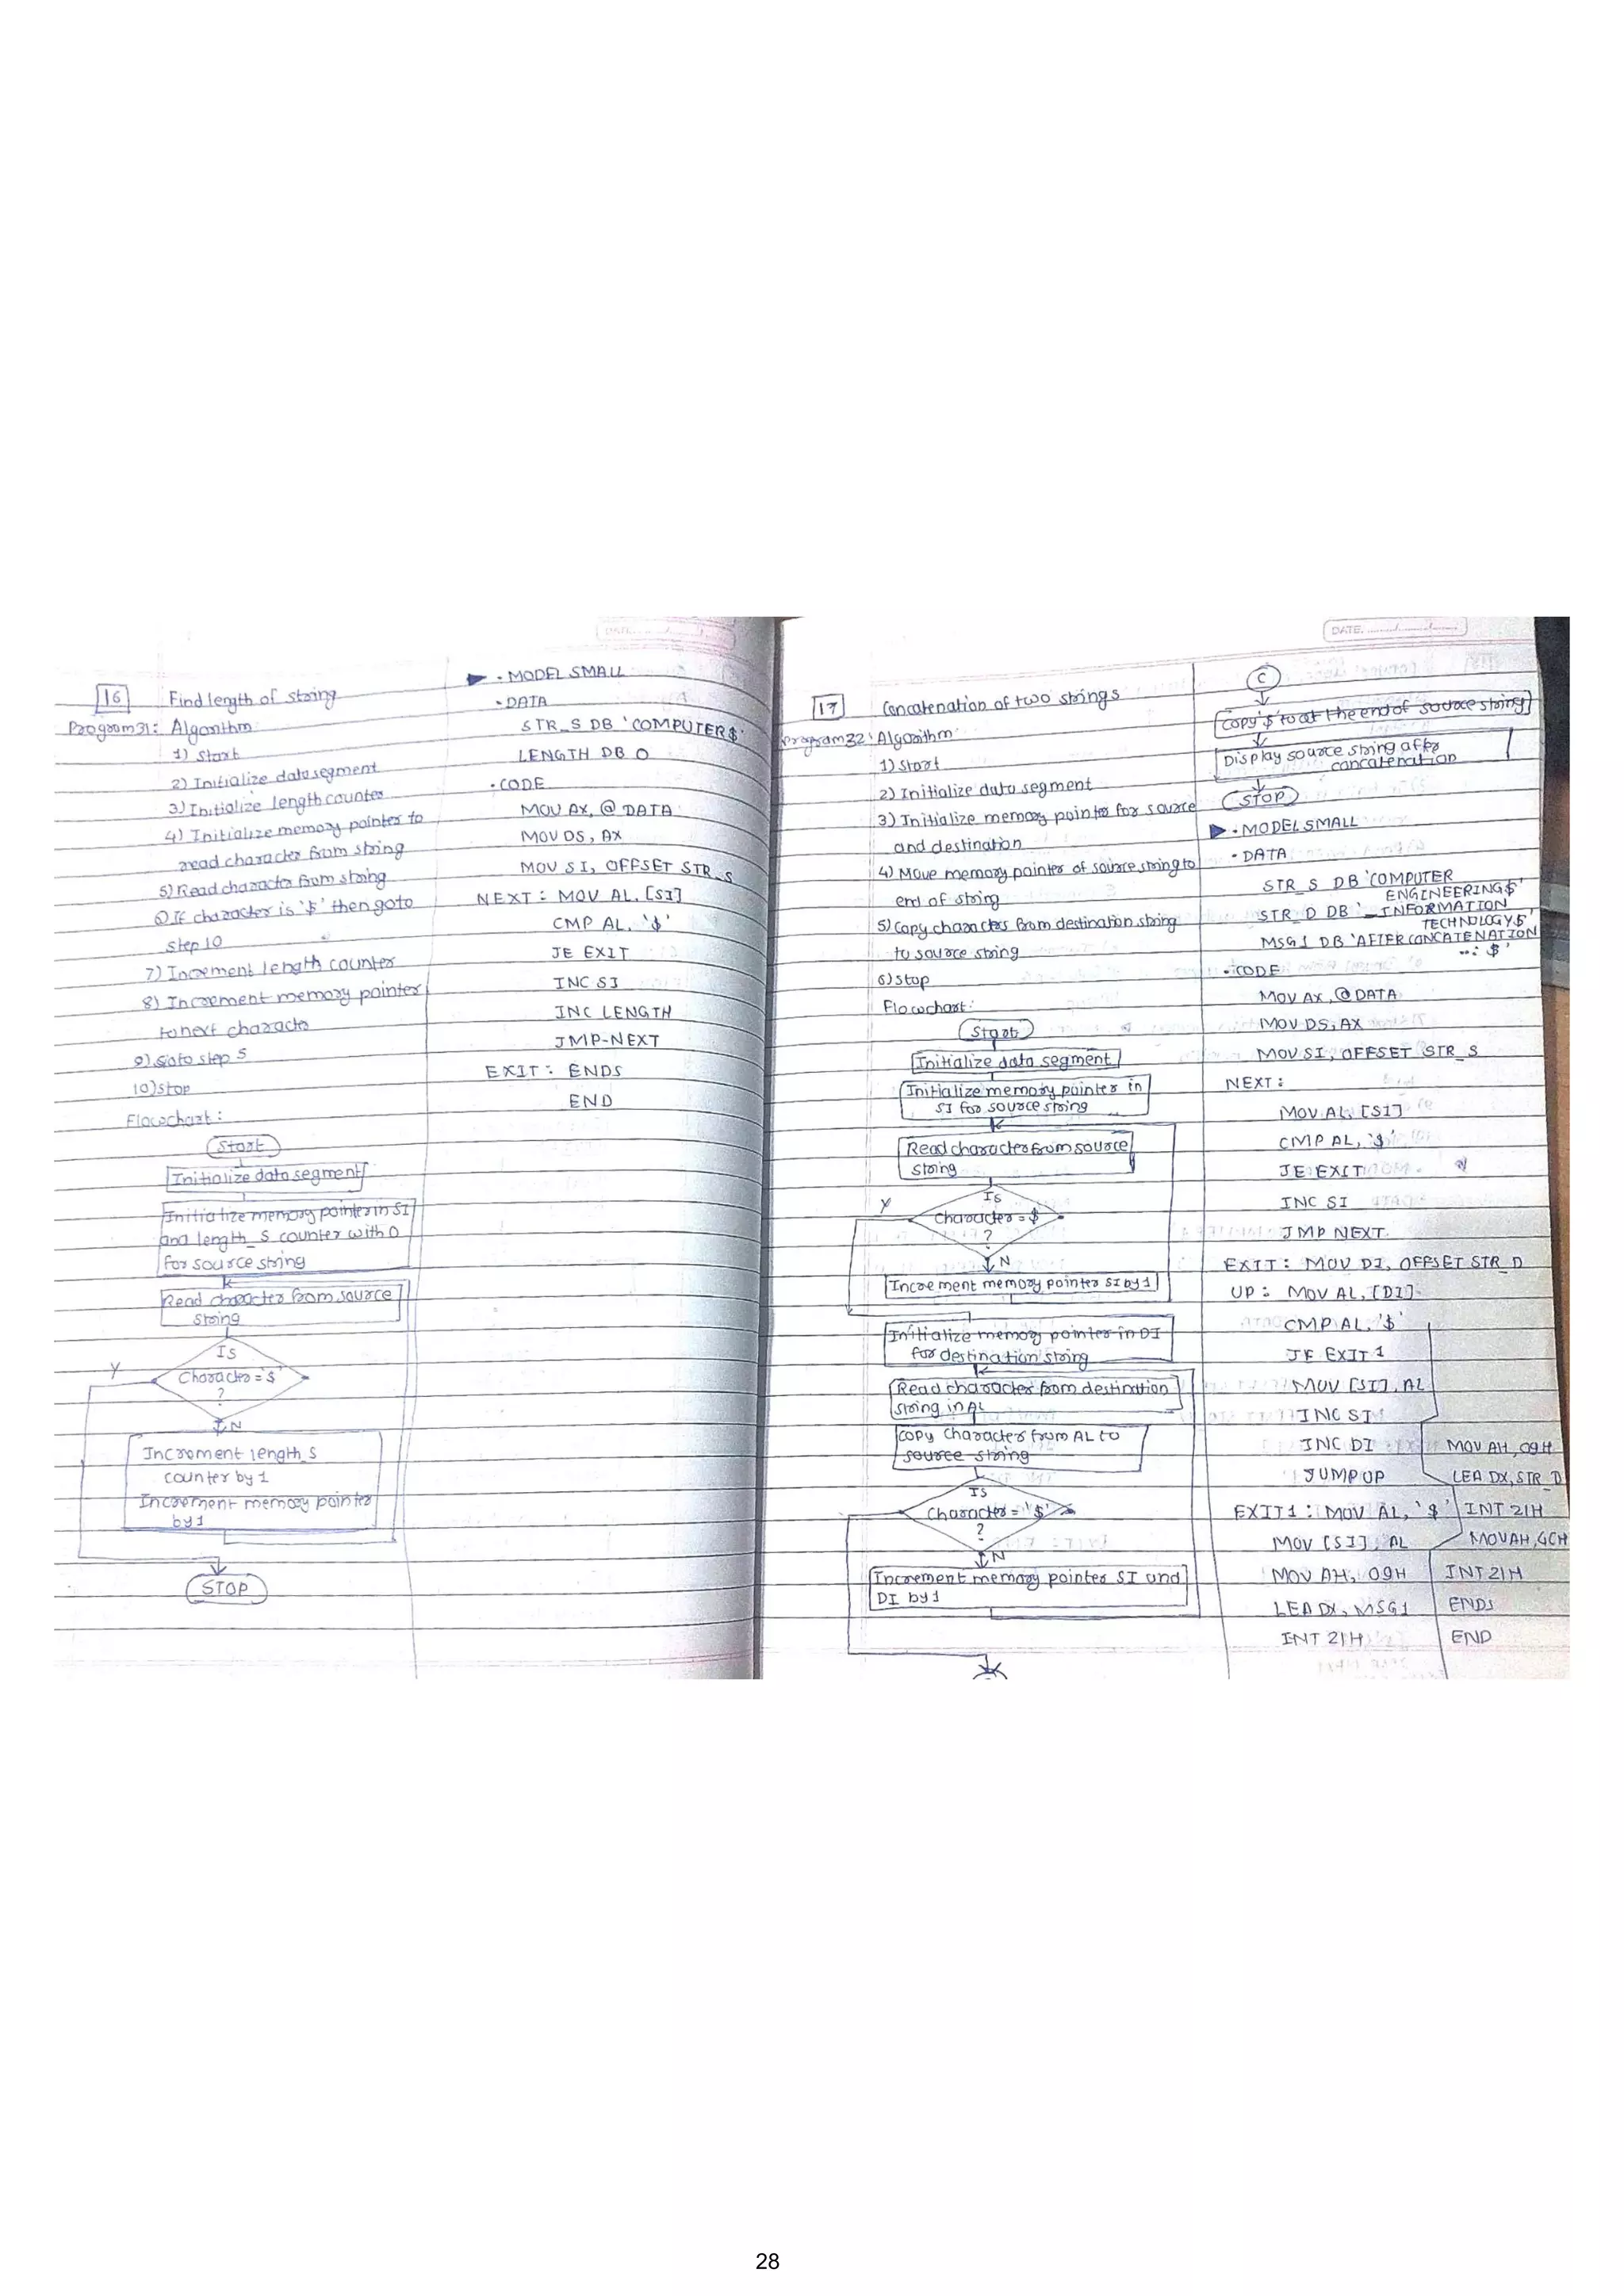 16 Find length of string
Program 31: Algorithm
1) Start
2) Initialize data segment
3) Initialize length counter
4) Initialize memory pointer to
read character from string
5) Read character from string
6) If character is '$' then goto
step 10
7) Increment length counter
8) Increment memory pointer
to next character
9) Goto step 5
10) stop
Flowchart:
Start
Initialize data segment
Initialize memory pointer in SI
and length_S counter with 0
for source string
Read character from source
string
Is
Character = '$'
?
Y
N
Increment length_S
counter by 1
Increment memory pointer
by 1
STOP
.MODEL SMALL
.DATA
STR_S DB 'COMPUTER$'
LENGTH DB 0
.CODE
MOV AX, @DATA
MOV DS, AX
MOV SI, OFFSET STR_S
NEXT: MOV AL, [SI]
CMP AL, '$'
JE EXIT
INC SI
INC LENGTH
JMP NEXT
EXIT: ENDS
END
DATE
17 Concatenation of two strings
Program 32: Algorithm
1) Start
2) Initialize data segment
3) Initialize memory pointer for source
and destination
4) Move memory pointer of source string to
end of string
5) Copy characters from destination string
to source string
6) Stop
Flowchart:
Start
Initialize data segment
Initialize memory pointer in
SI for source string
Read character from source
string
Is
Character = $
?
Y
N
Increment memory pointer SI by 1
Initialize memory pointer in DI
for destination string
Read character from destination
string in AL
Copy character from AL to
source string
Is
Character = '$'
?
N
Increment memory pointer SI and
DI by 1
C
Copy $ to at the end of source string
Display source string after
concatenation
STOP
.MODEL SMALL
.DATA
STR_S DB 'COMPUTER
ENGINEERING$'
STR_D DB '_INFORMATION
TECHNOLOGY$'
MSG1 DB 'AFTER CONCATENATION
..: $'
.CODE
MOV AX, @DATA
MOV DS, AX
MOV SI, OFFSET STR_S
NEXT:
MOV AL, [SI]
CMP AL, '$'
JE EXIT
INC SI
JMP NEXT
EXIT: MOV DI, OFFSET STR_D
UP: MOV AL, [DI]
CMP AL, '$'
JE EXIT 1
MOV [SI], AL
INC SI
INC DI
JUMP UP
EXIT1: MOV AL, '$'
MOV [SI], AL
MOV AH, 09H
LEA DX, MSG1
INT 21H
MOV AH, 09H
LEA DX, STR_D
INT 21H
MOV AH, 4CH
INT 21H
ENDS
END
28